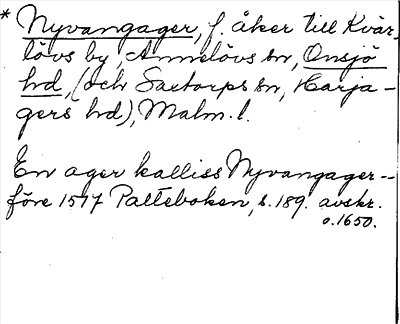 * Nyvangager, f. åker till Kvär-
lövs by, Annelövs sn, Onsjö
hd, (och Saxtorps sn, Harja-
gers hd), Malm. l.
En ager kalliss Nyvangager --
före 1517 Palteboken, s. 189. avskr.
o. 1650.